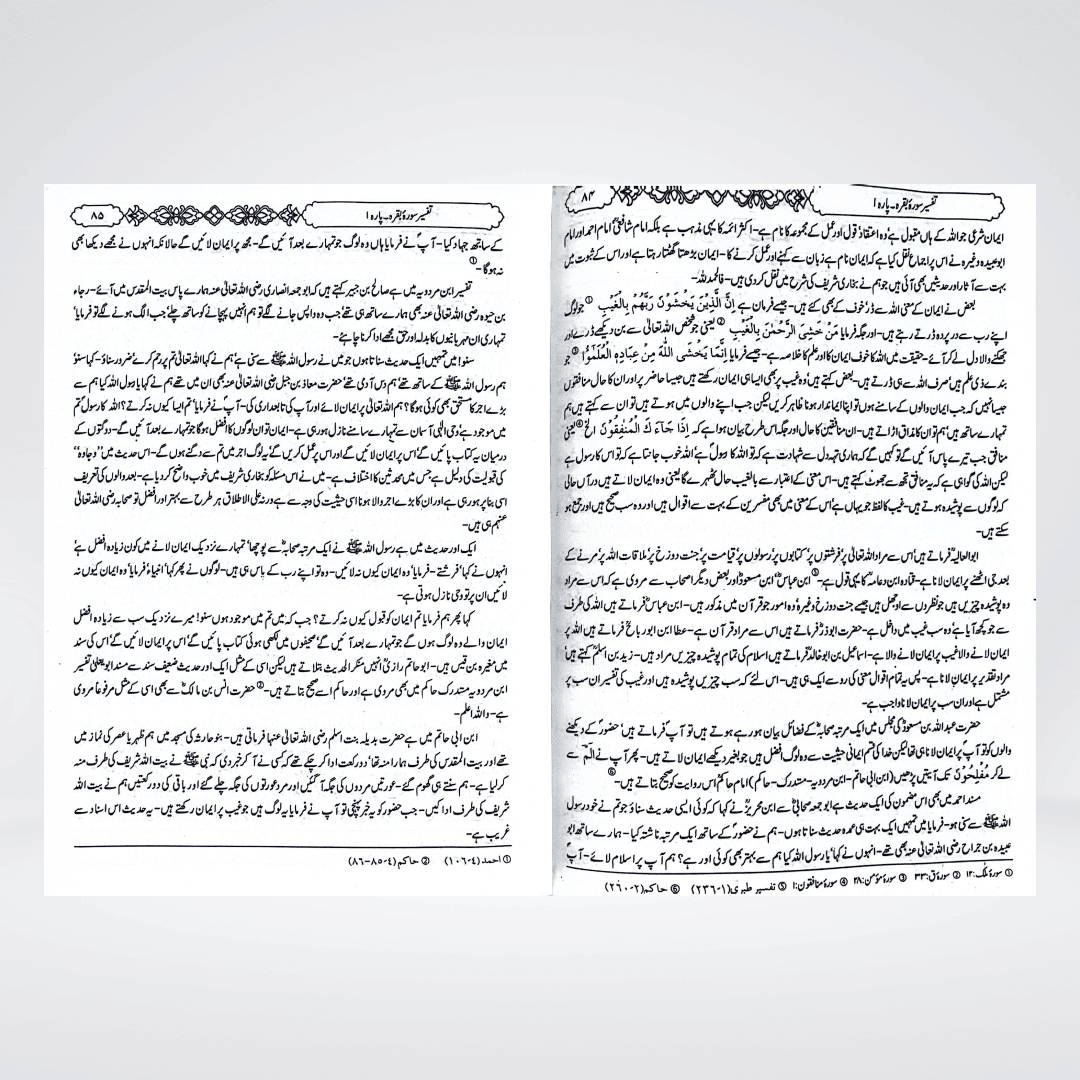 تفسیر سورۂ بقرہ۔ پارہ ۱
۸۴
ایمان شرعی جو اللہ کے ہاں مقبول ہے وہ اعتقاد قول اور عمل کے مجموعہ کا نام ہے۔ اکثر ائمہ کا یہی مذہب ہے بلکہ امام شافعیؒ امام احمد اور امام
ابو عبیدہ وغیرہ نے اس پر اجماع نقل کیا ہے کہ ایمان نام ہے زبان سے کہنے اور عمل کرنے کا۔ ایمان بڑھتا گھٹتا رہتا ہے اور اس کے ثبوت میں
بہت سے آثار اور حدیثیں بھی آئی ہیں جو ہم نے بخاری شریف کی شرح میں نقل کر دی ہیں۔ فالحمدللہ۔
بعض نے ایمان کے معنی اللہ سے ڈر خوف کے بھی کئے ہیں۔ جیسے فرمان ہے اِنَّ الَّذِیْنَ یَخْشَوْنَ رَبَّهُمْ بِالْغَیْبِ ① جو لوگ
اپنے رب سے در پردہ ڈرتے رہتے ہیں۔ اور جگہ فرمایا مَنْ خَشِیَ الرَّحْمٰنَ بِالْغَیْبِ ② یعنی جو شخص اللہ تعالیٰ سے بن دیکھے ڈرے اور
جھکنے والا دل لے کر آئے۔ حقیقت میں اللہ کا خوف ایمان کا اور علم کا خلاصہ ہے۔ جیسے فرمایا اِنَّمَا یَخْشَی اللّٰهَ مِنْ عِبَادِهِ الْعُلَمٰٓؤُا ③ جو
بندے ذی علم ہیں صرف اللہ سے ہی ڈرتے ہیں۔ بعض کہتے ہیں وہ غیب پر بھی ایسا ہی ایمان رکھتے ہیں جیسا حاضر پر اور ان کا حال منافقوں
جیسا نہیں کہ جب ایمان والوں کے سامنے ہوں تو اپنا ایماندار ہونا ظاہر کریں لیکن جب اپنے والوں میں ہوتے ہیں تو ان سے کہتے ہیں ہم
تمہارے ساتھ ہیں ہم تو ان کا مذاق اڑاتے ہیں۔ ان منافقین کا حال اور جگہ اس طرح بیان ہوا ہے کہ اِذَا جَآءَكَ الْمُنٰفِقُوْنَ الخ ④ یعنی
منافق جب تیرے پاس آئیں گے تو کہیں گے کہ ہماری تہہ دل سے شہادت ہے کہ تو اللہ کا رسول ہے اللہ خوب جانتا ہے کہ تو اس کا رسول ہے
لیکن اللہ کی گواہی ہے کہ یہ منافق تجھ سے جھوٹ کہتے ہیں۔ اس معنی کے اعتبار سے بالغیب حال ٹھہرے گا یعنی وہ ایمان لاتے ہیں درآں حالیکہ
کہ لوگوں سے پوشیدہ ہوتے ہیں۔ غیب کا لفظ جو یہاں ہے اس کے معنی میں بھی مفسرین کے بہت سے اقوال ہیں اور وہ سب صحیح ہیں اور جمع ہو
سکتے ہیں۔
ابو العالیہؒ فرماتے ہیں اس سے مراد اللہ تعالیٰ پر، فرشتوں پر، کتابوں پر، رسولوں پر، قیامت پر، جنت دوزخ پر، ملاقات اللہ پر، مرنے کے
بعد جی اٹھنے پر ایمان لانا ہے۔ قتادہ ابن دعامہؒ کا یہی قول ہے۔ ⑤ ابن عباسؓ، ابن مسعودؓ اور بعض دیگر اصحاب سے مروی ہے کہ اس سے مراد
وہ پوشیدہ چیزیں ہیں جو نظروں سے اوجھل ہیں جیسے جنت دوزخ وغیرہ وہ امور جو قرآن میں مذکور ہیں۔ ابن عباسؓ فرماتے ہیں اللہ کی طرف
سے جو کچھ آیا ہے وہ سب غیب میں داخل ہے۔ حضرت ابو ذرؓ فرماتے ہیں اس سے مراد قرآن ہے۔ عطا ابن ابو رباحؒ فرماتے ہیں اللہ پر
ایمان لانے والا غیب پر ایمان لانے والا ہے۔ اسماعیل بن ابو خالدؒ فرماتے ہیں اسلام کی تمام پوشیدہ چیزیں مراد ہیں۔ زید بن اسلمؒ کہتے ہیں
مراد تقدیر پر ایمان لانا ہے۔ پس یہ تمام اقوال معنی کی رو سے ایک ہی ہیں۔ اس لئے کہ سب چیزیں پوشیدہ ہیں اور غیب کی تفسیر ان سب پر
مشتمل ہے اور ان سب پر ایمان لانا واجب ہے۔
حضرت عبداللہ بن مسعودؓ کی مجلس میں ایک مرتبہ صحابہؓ کے فضائل بیان ہو رہے ہوتے ہیں تو آپ فرماتے ہیں حضورؐ کے دیکھنے
والوں کو تو آپؐ پر ایمان لانا ہی تھا لیکن خدا کی قسم ایمانی حیثیت سے وہ لوگ افضل ہیں جو بغیر دیکھے ایمان لاتے ہیں۔ پھر آپ نے الٓمٓ سے
لے کر مُفْلِحُوْنَ تک آیتیں پڑھیں (ابن ابی حاتم۔ ابن مردویہ۔ مستدرک۔ حاکم) امام حاکمؒ اس روایت کو صحیح بتاتے ہیں۔ ⑥
مسند احمد میں بھی اس مضمون کی ایک حدیث ہے ابو جمعہ صحابیؓ سے ابن محریزؒ نے کہا کہ کوئی ایسی حدیث سناؤ جو تم نے خود رسول
اللہ ﷺ سے سنی ہو۔ فرمایا میں تمہیں ایک بہت ہی عمدہ حدیث سناتا ہوں۔ ہم نے حضورؐ کے ساتھ ایک مرتبہ ناشتہ کیا۔ ہمارے ساتھ ابو
عبیدہ بن جراح رضی اللہ تعالیٰ عنہ بھی تھے۔ انہوں نے کہا، یا رسول اللہ کیا ہم سے بہتر بھی کوئی اور ہے؟ ہم آپ پر اسلام لائے۔ آپؐ
① سورۂ ملک: ۱۲ ② سورۂ ق: ۳۳ ③ سورۂ مؤمن: ۲۸ ④ سورۂ منافقون: ۱ ⑤ تفسیر طبری (۱-۲۳۶) ⑥ حاکم (۲-۲۶۰)
تفسیر سورۂ بقرہ۔ پارہ ۱
۸۵
کے ساتھ جہاد کیا۔ آپؐ نے فرمایا ہاں وہ لوگ جو تمہارے بعد آئیں گے۔ مجھ پر ایمان لائیں گے حالانکہ انہوں نے مجھے دیکھا بھی
نہ ہو گا۔ ①
تفسیر ابن مردویہ میں ہے صالح بن جبیر کہتے ہیں کہ ابو جمعہ انصاری رضی اللہ تعالیٰ عنہ ہمارے پاس بیت المقدس میں آئے۔ رجاء
بن حیوہ رضی اللہ تعالیٰ عنہ بھی ہمارے ساتھ ہی تھے جب وہ واپس جانے لگے تو ہم انہیں پہچانے کو ساتھ چلے جب الگ ہونے لگے تو فرمایا،
تمہاری ان مہربانیوں کا بدلہ اور حق مجھے ادا کرنا چاہئے۔
سنو! میں تمہیں ایک حدیث سناتا ہوں جو میں نے رسول اللہ ﷺ سے سنی ہے، ہم نے کہا اللہ تعالیٰ تم پر رحم کرے ضرور سناؤ۔ کہا سنو،
ہم رسول اللہ ﷺ کے ساتھ تھے، ہم دس آدمی تھے، حضرت معاذ بن جبل رضی اللہ تعالیٰ عنہ بھی ان میں تھے ہم نے کہا یا رسول اللہ کیا ہم سے
بڑے اجر کا مستحق بھی کوئی ہو گا؟ ہم اللہ تعالیٰ پر ایمان لائے اور آپ کی تابعداری کی۔ آپؐ نے فرمایا، تم ایسا کیوں نہ کرتے؟ اللہ کا رسول تم
میں موجود ہے، وحی الٰہی آسمان سے تمہارے سامنے نازل ہو رہی ہے۔ ایمان تو ان لوگوں کا افضل ہو گا جو تمہارے بعد آئیں گے۔ دو گتوں کے
درمیان یہ کتاب پائیں گے، اس پر ایمان لائیں گے اور اس پر عمل کریں گے، یہ لوگ اجر میں تم سے دگنے ہوں گے۔ اس حدیث میں ’’وجادہ‘‘
کی قبولیت کی دلیل ہے جس میں محدثین کا اختلاف ہے۔ میں نے اس مسئلہ کو بخاری شریف میں خوب واضح کر دیا ہے۔ بعد والوں کی تعریف
اسی بنا پر ہو رہی ہے اور ان کا بڑے اجر والا ہونا اسی حیثیت کی وجہ سے ہے ورنہ علی الاطلاق ہر طرح سے بہتر اور افضل تو صحابہ رضی اللہ تعالیٰ
عنہم ہی ہیں۔
ایک اور حدیث میں ہے رسول اللہ ﷺ نے ایک مرتبہ صحابہؓ سے پوچھا، تمہارے نزدیک ایمان لانے میں کون زیادہ افضل ہے؟
انہوں نے کہا، فرشتے۔ فرمایا، وہ ایمان کیوں نہ لائیں۔ وہ تو اپنے رب کے پاس ہی ہیں۔ لوگوں نے پھر کہا، انبیاء، فرمایا، وہ ایمان کیوں نہ
لائیں ان پر تو وحی نازل ہوتی ہے۔
کہا پھر ہم، فرمایا تم ایمان کو قبول کیوں نہ کرتے؟ جب کہ میں تم میں موجود ہوں سنو! میرے نزدیک سب سے زیادہ افضل
ایمان والے وہ لوگ ہوں گے جو تمہارے بعد آئیں گے، صحیفوں میں لکھی ہوئی کتاب پائیں گے، اس پر ایمان لائیں گے، اس کی سند
میں مغیرہ بن قیس ہیں۔ ابو حاتم رازیؒ انہیں منکر الحدیث بتلاتے ہیں لیکن اسی کے مثل ایک اور حدیث ضعیف سند سے مسند ابو یعلیٰ، تفسیر
ابن مردویہ، مستدرک حاکم میں بھی مروی ہے اور حاکم اسے صحیح بتاتے ہیں۔ ② حضرت انس بن مالکؓ سے بھی اسی کے مثل مرفوعاً مروی
ہے۔ واللہ اعلم۔
ابن ابی حاتم میں ہے حضرت بدیلہ بنت اسلم رضی اللہ تعالیٰ عنہا فرماتی ہیں۔ بنو حارثہ کی مسجد میں ہم ظہر یا عصر کی نماز میں
تھے اور بیت المقدس کی طرف ہمارا منہ تھا، دو رکعت ادا کر چکے تھے کہ کسی نے آ کر خبر دی کہ نبی ﷺ نے بیت اللہ شریف کی طرف منہ
کر لیا ہے۔ ہم سنتے ہی گھوم گئے۔ عورتیں مردوں کی جگہ آ گئیں اور مرد عورتوں کی جگہ چلے گئے اور باقی کی دو رکعتیں ہم نے بیت اللہ
شریف کی طرف ادا کیں۔ جب حضورؐ کو یہ خبر پہنچی تو آپ نے فرمایا یہ لوگ ہیں جو غیب پر ایمان رکھتے ہیں۔ یہ حدیث اس اسناد سے
غریب ہے۔
① احمد (۴-۱۰۶) ② حاکم (۴-۸۵-۸۶)